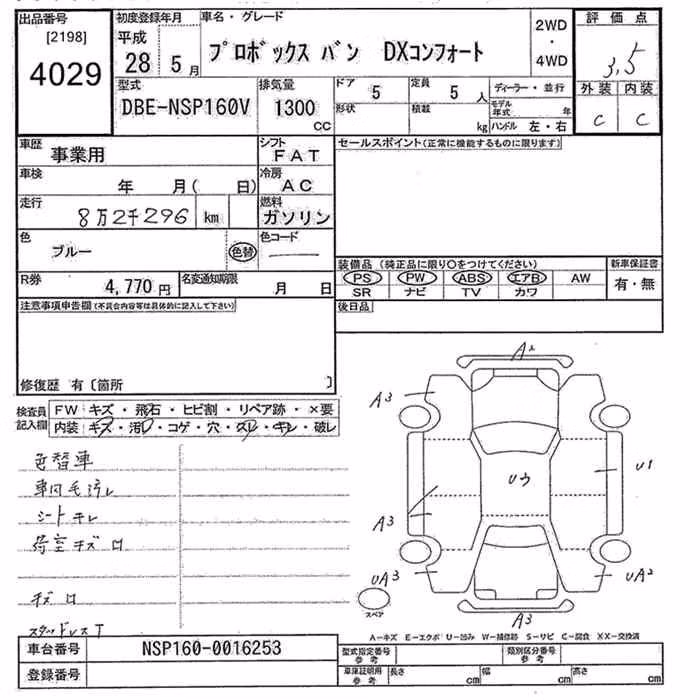 出品番号 初度登録年月 車名・グレード 2WD ・ 4WD 評価点
[2198] 平成
4029 28 5月 プロボックス バン DXコンフォート 3,5
型式 排気量 ドア 定員 ディーラー・並行 外装 内装
DBE-NSP160V 1300 CC 5 5 人 モデル年式 年 C C
形状 積載 kg ハンドル 左・右
車歴 事業用 シフト FAT セールスポイント(正常に機能するものに限ります)
車検 年 月( 日) 冷房 AC
走行 8万2千296 km 燃料 ガソリン
色 ブルー 色替 色コード
装備品 (純正品に限り〇をつけてください) 新車保証書
R券 4,770円 名変通知期限 月 日 PS PW ABS エアB AW 有・無
SR ナビ TV カワ
注意事項申告欄(不具合内容等は具体的に記入して下さい) 後日品
修復歴 有〔箇所 〕
検査員記入欄 FW キズ・飛石・ヒビ割・リペア跡・×要
内装 キズ・汚レ・コゲ・穴・スレ・キレ・破レ
色替車
車内毛汚レ
シートキレ
荷室キズ ロ
キズ ロ
スタッドレスT
A2
A3
U1
Uウ
A3
UA3 UA2
スペア A3
A-キズ E-エクボ U-凹み W-補修跡 S-サビ C-腐食 XX-交換済
車台番号 NSP160-0016253 型式指定番号 参考 類別区分番号 参考
登録番号 車庫証明用 参考 長さ cm 幅 cm 高さ cm